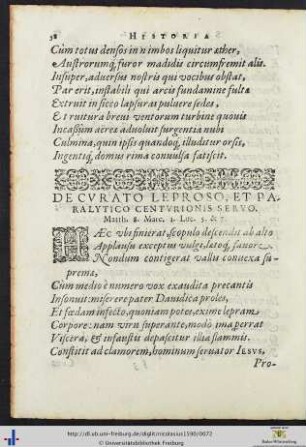 38 HISTORIA
Cùm totus densos in nimbos liquitur æther,
Austrorumq́; furor madidis circumfremit alis.
Insuper, adversus nostris qui vocibus obstat,
Par erit, instabili qui arcis fundamine fulta
Extruit in sicco lapsuras pulvere sedes,
Et ruitura brevi ventorum turbine quovis
Incassùm aërea aduoluit surgentia nubi
Culmina, quîn ipsis quandoq́; illuditur orsis,
Ingentiq́; domus rima convulsa fatiscit.
DE CVRATO LEPROSO, ET PA-
RALYTICO CENTVRIONIS SERVO.
Matth. 8. Marc. 1. Luc. 5. & 7.
HÆc vbi finierat, scopulo descendit ab alto
Applausu exceptus vulgi, lætoq́; favore
Nondum contigerat vallis connexa su-
prema,
Cùm medio è numero vox exaudita precantis
Insonuit: miserere pater Davidica proles,
Et fœdam infecto, quoniam potes, exime lepram
Corpore: nam vim superante, modo ima perrat
Viscera, & infaustis depascitur illa flammis.
Constitit ad clamorem, hominum servator IESVS,
Pro-
http://dl.ub.uni-freiburg.de/diglit/nicolasius1590/0072
© Universitätsbibliothek Freiburg